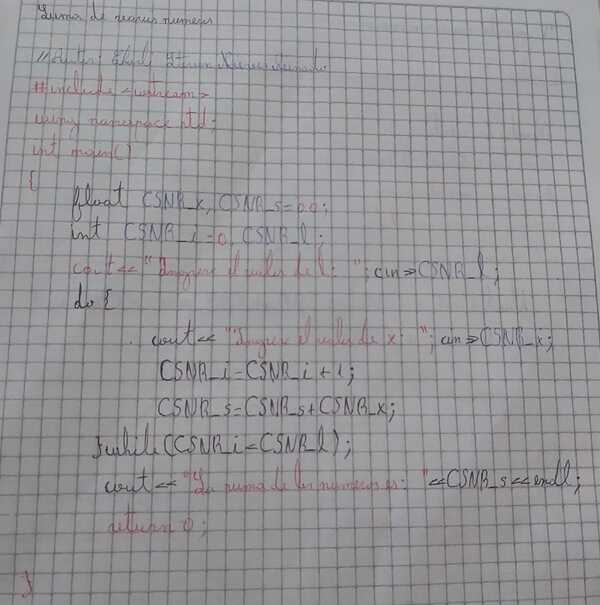 Suma de varios numeros
//Autor:
#include <iostream>
using namespace std;
int main()
{
float CSNR_x, CSNR_s=0.0;
int CSNR_i=0, CSNR_l;
cout<<"Ingrese el valor de l: "; cin>>CSNR_l;
do {
cout<<"Ingrese el valor de x: "; cin>>CSNR_x;
CSNR_i=CSNR_i+1;
CSNR_s=CSNR_s+CSNR_x;
}while(CSNR_i<CSNR_l);
cout<<"La suma de los numeros es: "<<CSNR_s<<endl;
return 0;
}